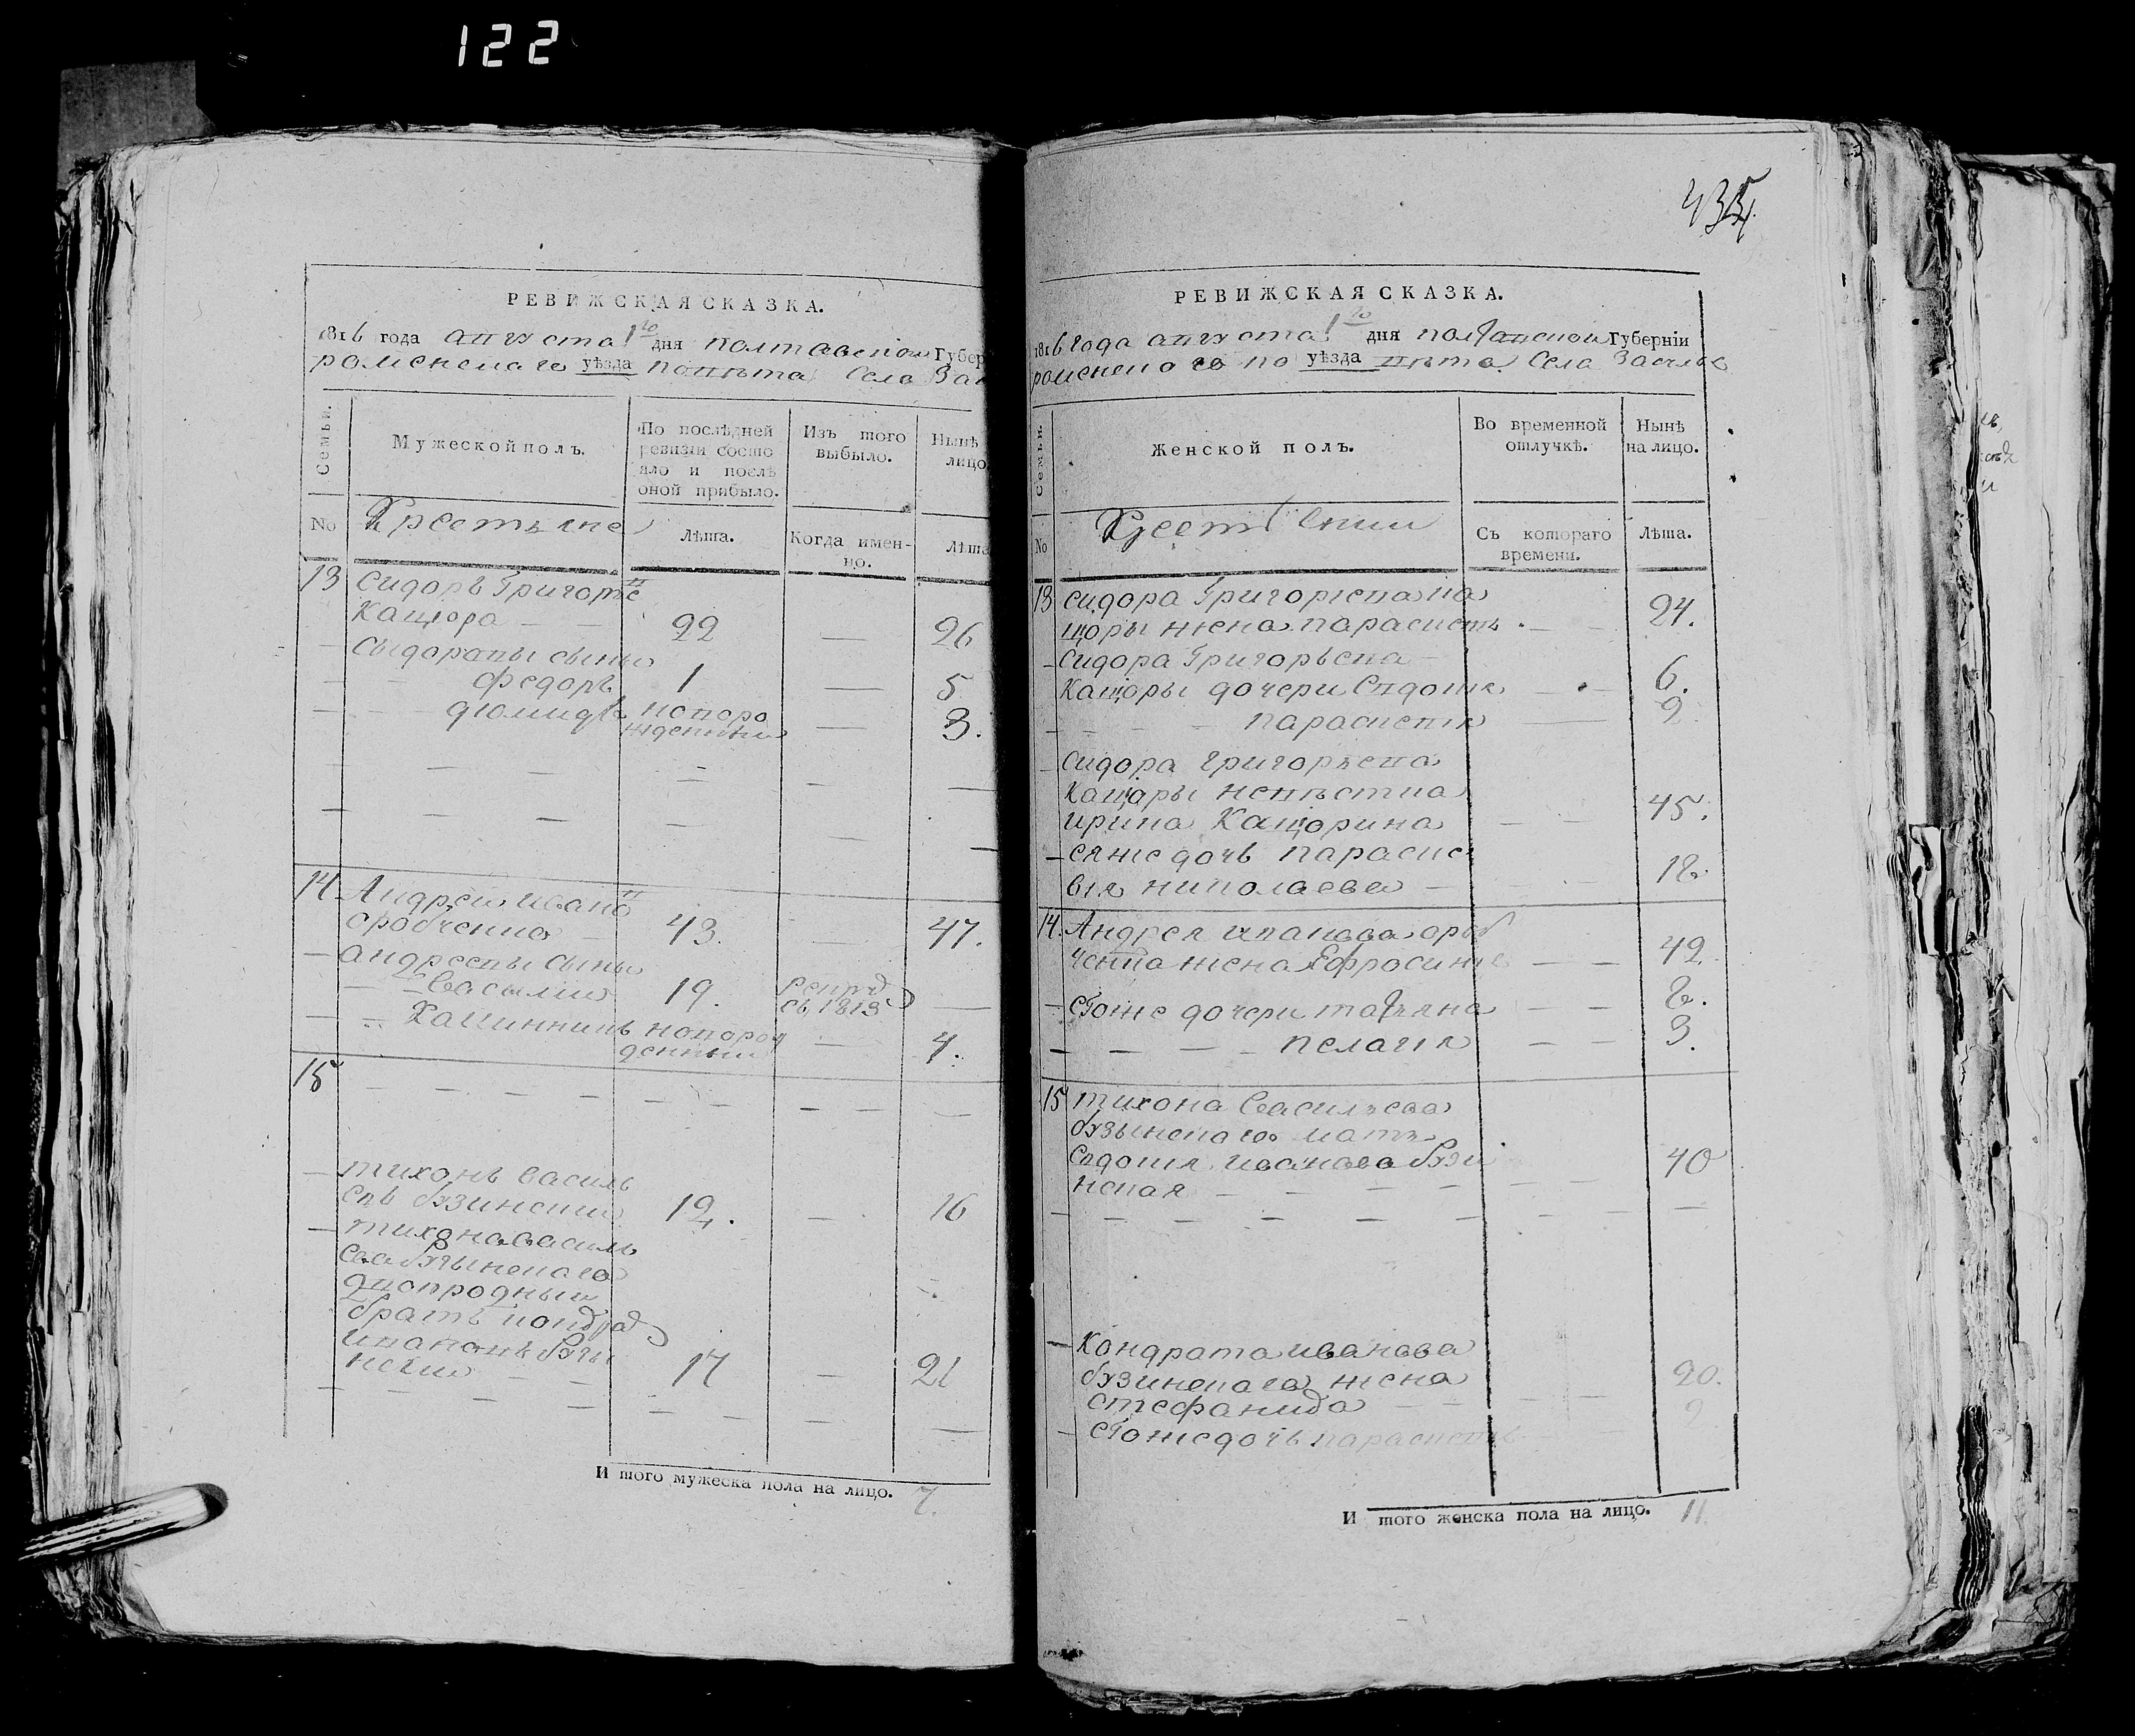 122
РЕВИЖСКАЯ СКАЗКА.
1816 года августа 1го дня полтавской Губер
роменскаго уѣзда повѣта Села
Семьи.
Мужеской полъ.
По послѣдней ревизіи состояло и послѣ оной прибыло.
Изъ того выбыло.
Нынѣ лицо
No
Крестьяне
Лѣта.
Когда именно.
Лѣта
13 сидоръ Григорѣев
Кащора — — 22 — 26
— сыдоровы сыны
— — федоръ 1 — 5
— — дюмидъ новорожденный — 3.
14 Андрей ивано
оробченко — 43. — 47.
— андреевы сыны
— Василий 19. рекрут съ 1813 —
— Калинникъ новорожденный — 4.
15
— тихонъ василь
евъ бузинский 12. — 16
— тихона василь
ева бузынскаго
двоюродный
братъ кондрат
ивановъ бузы
нский — — 17 — 21
И того мужеска пола на лицо. 7.
РЕВИЖСКАЯ СКАЗКА.
1816 года августа 1го дня полтавской Губерніи
роменскаго по уѣзда вѣта Села
Семьи.
Женской полъ.
Во временной отлучкѣ.
Нынѣ на лицо.
No
Съ котораго времени.
Лѣта.
13 сидора Григориева ка
щоры жена парасиевь — — 24.
— сидора Григорьева —
Кащоры дочери Євдокия — — 6.
— — — — парасиевия — 2.
— сидора григорьева
Кащоры невѣстка
ирина Кащорина — — 45.
— еяже дочь параске
вия николаева — — — 18.
14. Андрея иванова ороб
ченка жена Ефросиния — — 42.
— егоже дочери татьяна — — 8.
— — — — пелагия — — 3.
15 тихона Васильева
бузынскаго мать
Євдокия иванова бузи
нская — — — — — — 40
— Кондрата иванова
бузинскаго жена
стефанида — — — — 20.
— егоже дочь парасиевия 2
И того женска пола на лицо. 11.